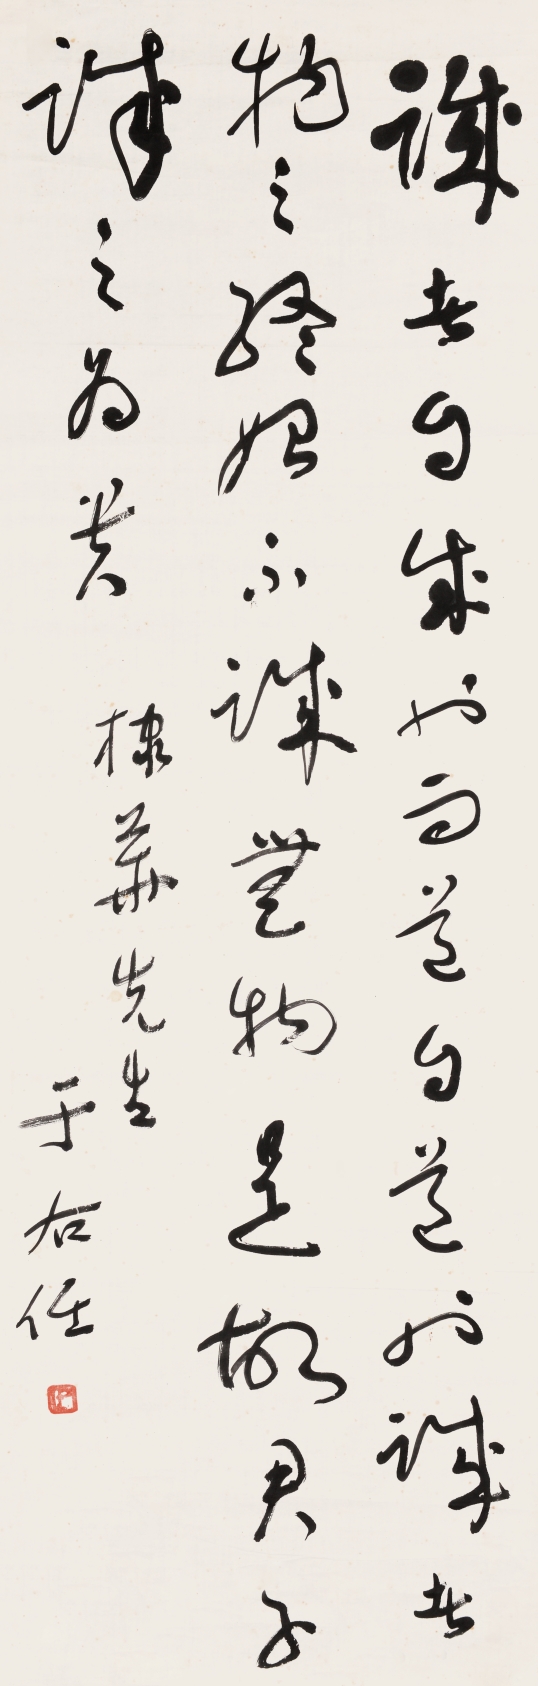 誠者自成也而道自道也誠者
物之終始不誠無物是故君子
誠之為貴
棣華先生
于右任